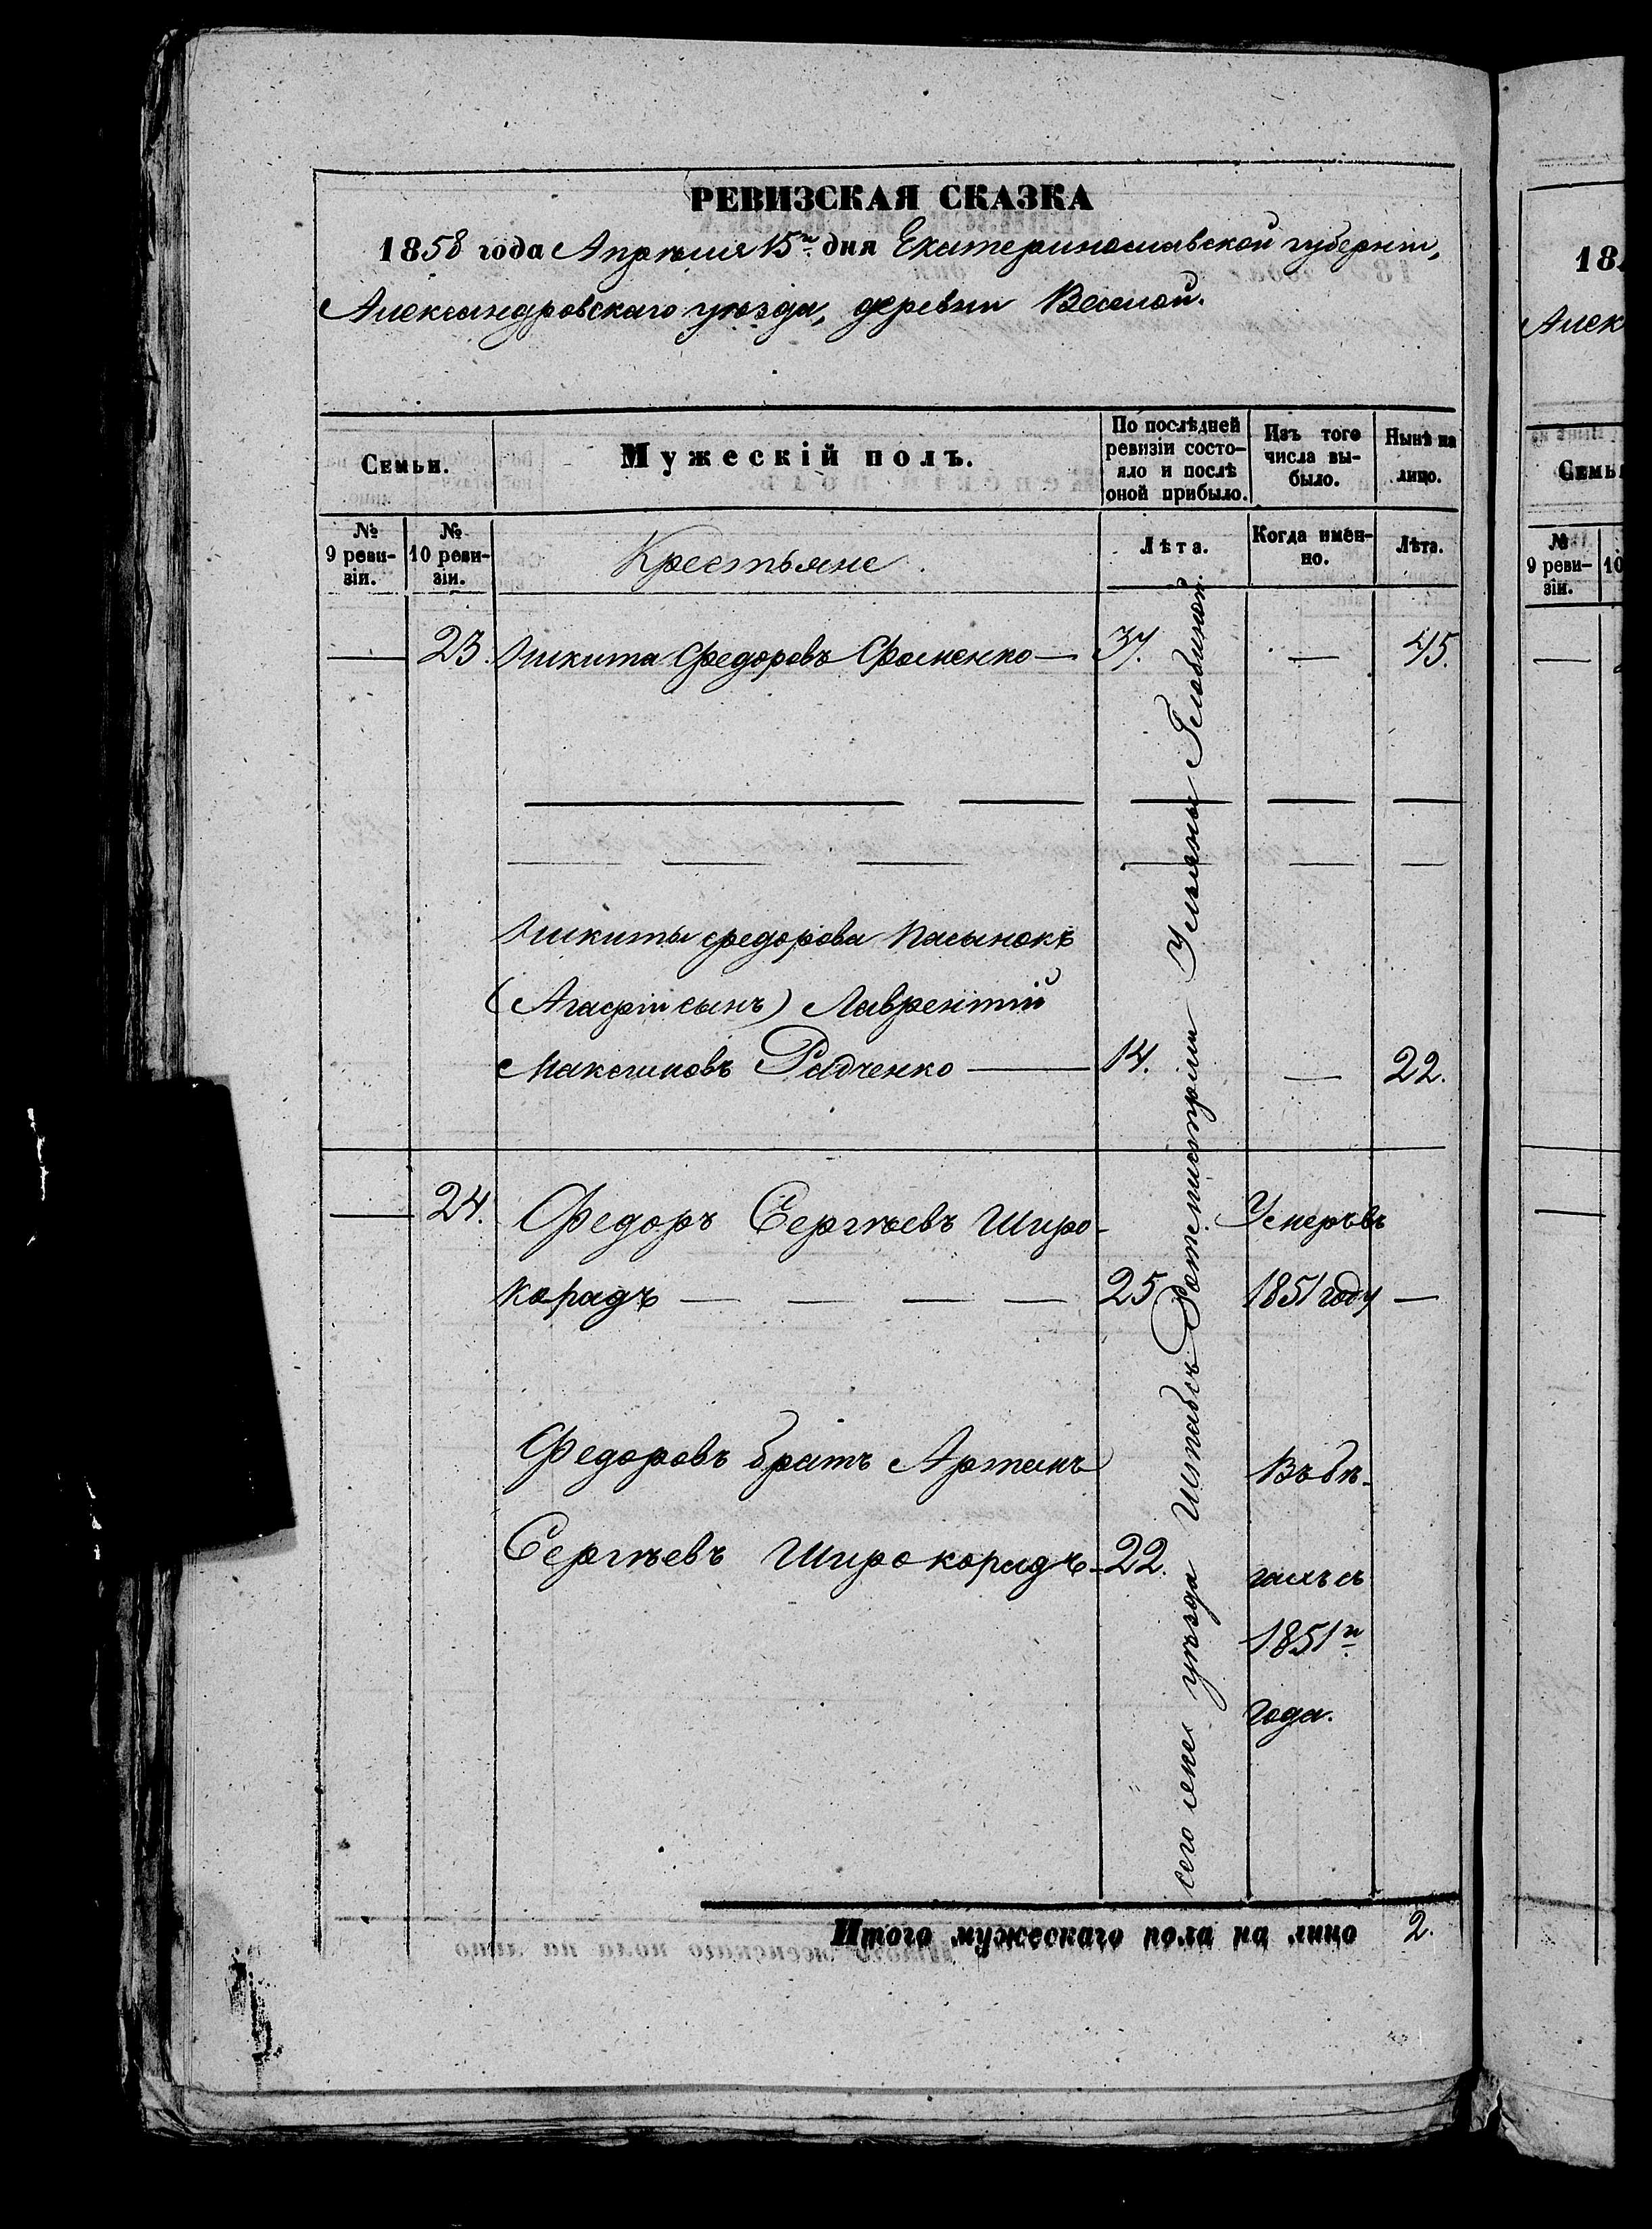 РЕВИЗСКАЯ СКАЗКА
1858 года Апрѣля 15го дня Екатеринославской губерніи,
Александровскаго уѣзда, деревни Веселой.
Семьи.
Мужескій полъ.
По послѣдней ревизіи состояло и послѣ оной прибыло.
Изъ того числа выбыло.
Нынѣ на лицо.
№ 9 ревизіи.
№ 10 ревизіи.
Крестьяне.
Лѣта.
Когда именно.
Лѣта.
— 23. Никита Федоровъ Фоменко — 37. — 45.
Никиты Федорова пасынокъ
(Агафіи сынъ) Лаврентій
Максимовъ Радченко — 14. — 22.
— 24. Федоръ Сергѣевъ Широ- Умеръ въ
корадъ — — — — 25 1851 году —
Федоровъ братъ Артемъ Въ бѣ-
Сергѣевъ Широкорадъ - 22. гахъ съ
1851го
года.
сего же уѣзда Штабсъ Ротмистрши Ульяны Глобиной.
Итого мужескаго пола на лицо 2.
18
Алек
Семьи
№ 9 ревизіи.
10